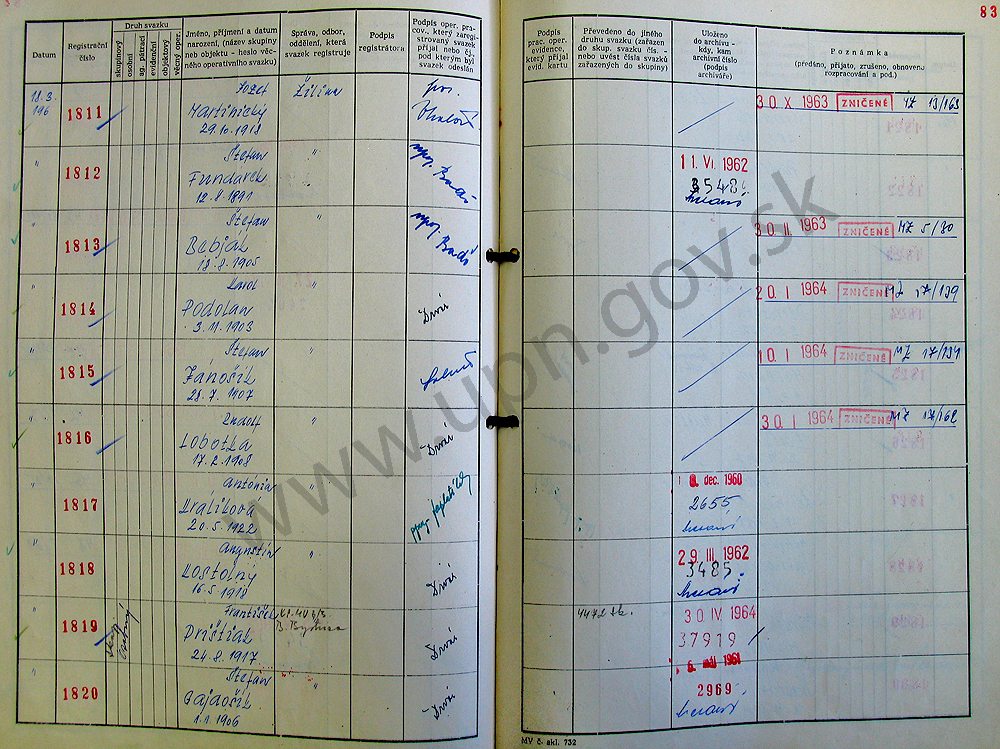 83
Datum
Registrační číslo
Druh svazku
skupinový
osobní
ag. pátrací
evidenční
objektový
věcný oper.
Jméno, příjmení a datum
narození, (název skupiny
neb objektu - heslo věc-
ného operativního svazku)
Správa, odbor,
oddělení, která
svazek registruje
Podpis
registrátora
Podpis oper. pra-
cov., který zaregi-
strováný svazek
přijal nebo čj.,
pod kterým byl
svazek odeslán
Podpis
prac. oper.
evidence,
který přijal
evid. kartu
Převedeno do jiného
druhu svazku (zařazen
do skup. svazku čís. -
nebo uvést čísla svazků
zařazených do skupiny)
Uloženo
do archivu -
kdy, kam
archivní číslo
(podpis
archiváře)
Poznámka
(předáno, přijato, zrušeno, obnoveno
rozpracování a pod.)
18.3.
196
1811
Jozef
Martinický
29.10.1918
Žilina
30. X 1963 ZNIČENÉ MZ 13/163
" 1812
Štefan
Fundarek
12.8.1891
"
11. VI. 1962
3548
" 1813
Štefan
Bebjak
18.8.1905
"
30. II. 1963 ZNIČENÉ MZ 5/30
" 1814
Karol
Podolan
3.11.1903
"
Drváš
20. I 1964 ZNIČENÉ MZ 17/139
" 1815
Štefan
Jánošík
28.7.1907
"
10. I 1964 ZNIČENÉ MZ 17/134
" 1816
Rudolf
Lobotka
17.2.1908
"
Drváš
30. I 1964 ZNIČENÉ MZ 17/162
" 1817
Antónia
Králiková
20.5.1922
"
dec. 1960
2655
" 1818
Augustín
Kostolný
16.5.1910
"
Drváš
29. III. 1962
3485
" 1819
František
Drištiak
24.8.1917
B. Bystrica
Drváš
30. IV 1964
37919
" 1820
Štefan
Gajdošík
1.1.1906
"
Drváš
6. máj 1961
2969
MV č. skl. 732
www.upn.gov.sk